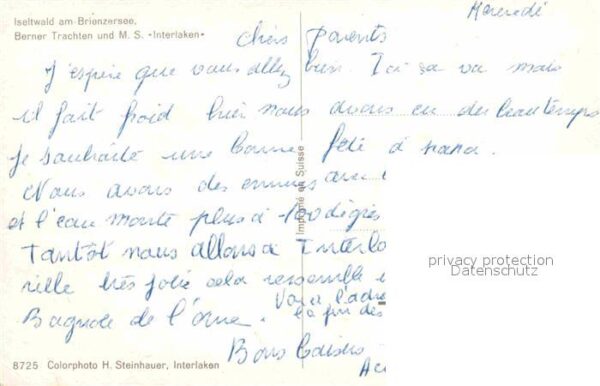 Iseltwald am Brienzersee.
Berner Trachten und M. S. «Interlaken»
Mercredi
Chers Parents
J'espère que vous allez bien. Ici ça va mais
il fait froid hier nous avons eu du beau temps
Je souhaite une bonne fête à
Nous avons des ennuis avec
et l'eau monte plus à 100 degrés
Tantôt nous allons à Interla
ville très jolie cela ressemble
Bagnole de l'orne.
Voir l'adre
la fin des
Bons baisers
Imprimé en Suisse
privacy protection
Datenschutz
8725 Colorphoto H. Steinhauer, Interlaken